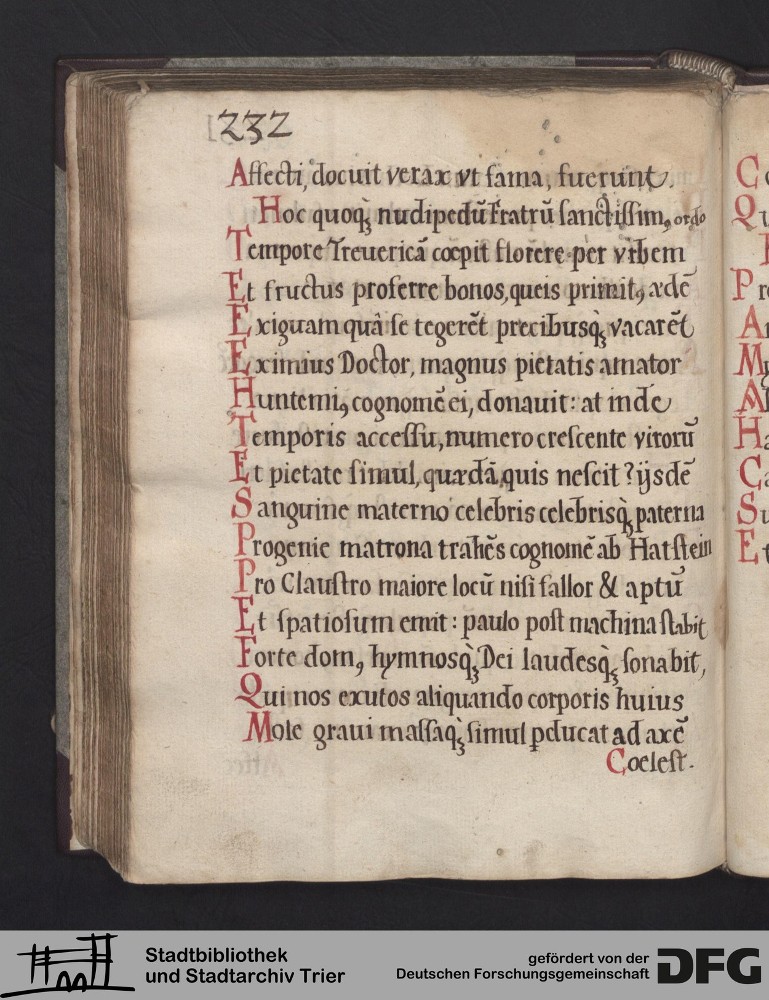 232
Affecti, docuit verax vt fama, fuerunt.
Hoc quoq̀ꝫ nudipedū fratrū sanctissimꝰ ordo
Tempore Treuericā coepit florere per vrbem
Et fructus proferre bonos, queis primitꝰ ædē
Exiguam quâ se tegerēt precibusq̀ꝫ vacarēt
Eximius Doctor, magnus pietatis amator
Huntemiꝰ cognomē ei, donauit: at inde
Temporis accessu, numero crescente virorū
Et pietate simul, quædā, quis nescit? ijsdē
Sanguine materno celebris celebrisq̀ꝫ paterna
Progenie matrona trahēs cognomē ab Hatstein
Pro Claustro maiore locū nisi fallor & aptū
Et spatiosum emit: paulo post machina stabit
Forte domꝰ, hymnosq̀ꝫ Dei laudesq̀ꝫ sonabit,
Qui nos exutos aliquando corporis huius
Mole graui massaq̀ꝫ simul ꝑducat ad axē
Coelest.
C
Q
P
A
M
A
H
C
S
E
Stadtbibliothek
und Stadtarchiv Trier
gefördert von der
Deutschen Forschungsgemeinschaft
DFG